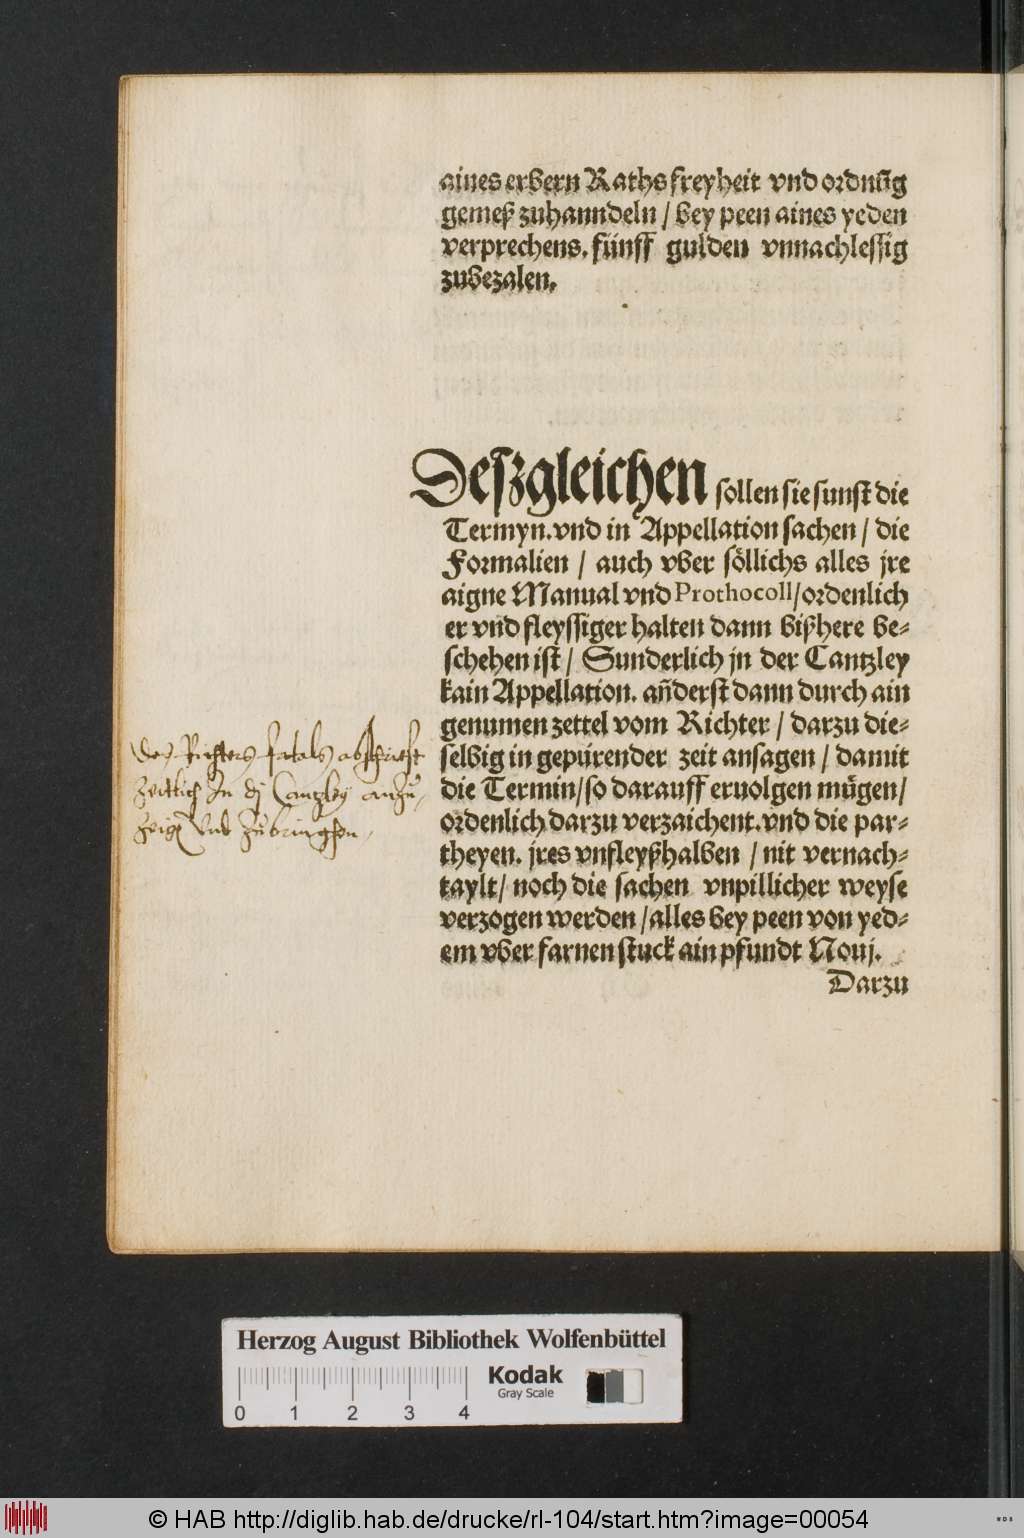 aines erbern Raths freyheit vnd ordnūg
gemeß zuhanndeln / bey peen aines yeden
verprechens. fünff gulden vnnachlessig
zubezalen.
Deſzgleichen sollen sie sunst die
Termyn. vnd in Appellation sachen / die
Formalien / auch vber söllichs alles jre
aigne Manual vnd Prothocoll / ordenlich
er vnd fleyssiger halten dann bißhere be-
schehen ist / Sunderlich jn der Cantzley
kain Appellation. an̄derst dann durch ain
genumen zettel vom Richter / darzu die-
selbig in gepürender zeit ansagen / damit
die Termin / so darauff eruolgen mügen /
ordenlich darzu verzaichent. vnd die par-
theyen. jres vnfleyßhalben / nit vernach-
taylt / noch die sachen vnpillicher weyse
verzogen werden / alles bey peen von yed-
em vber farnen stuck ain pfundt Nouj.
Darzu
des Richters
zeitlich In dj Cantzley anzu
vnd zubringen
Herzog August Bibliothek Wolfenbüttel
Kodak
Gray Scale
0 1 2 3 4
© HAB http://diglib.hab.de/drucke/rl-104/start.htm?image=00054